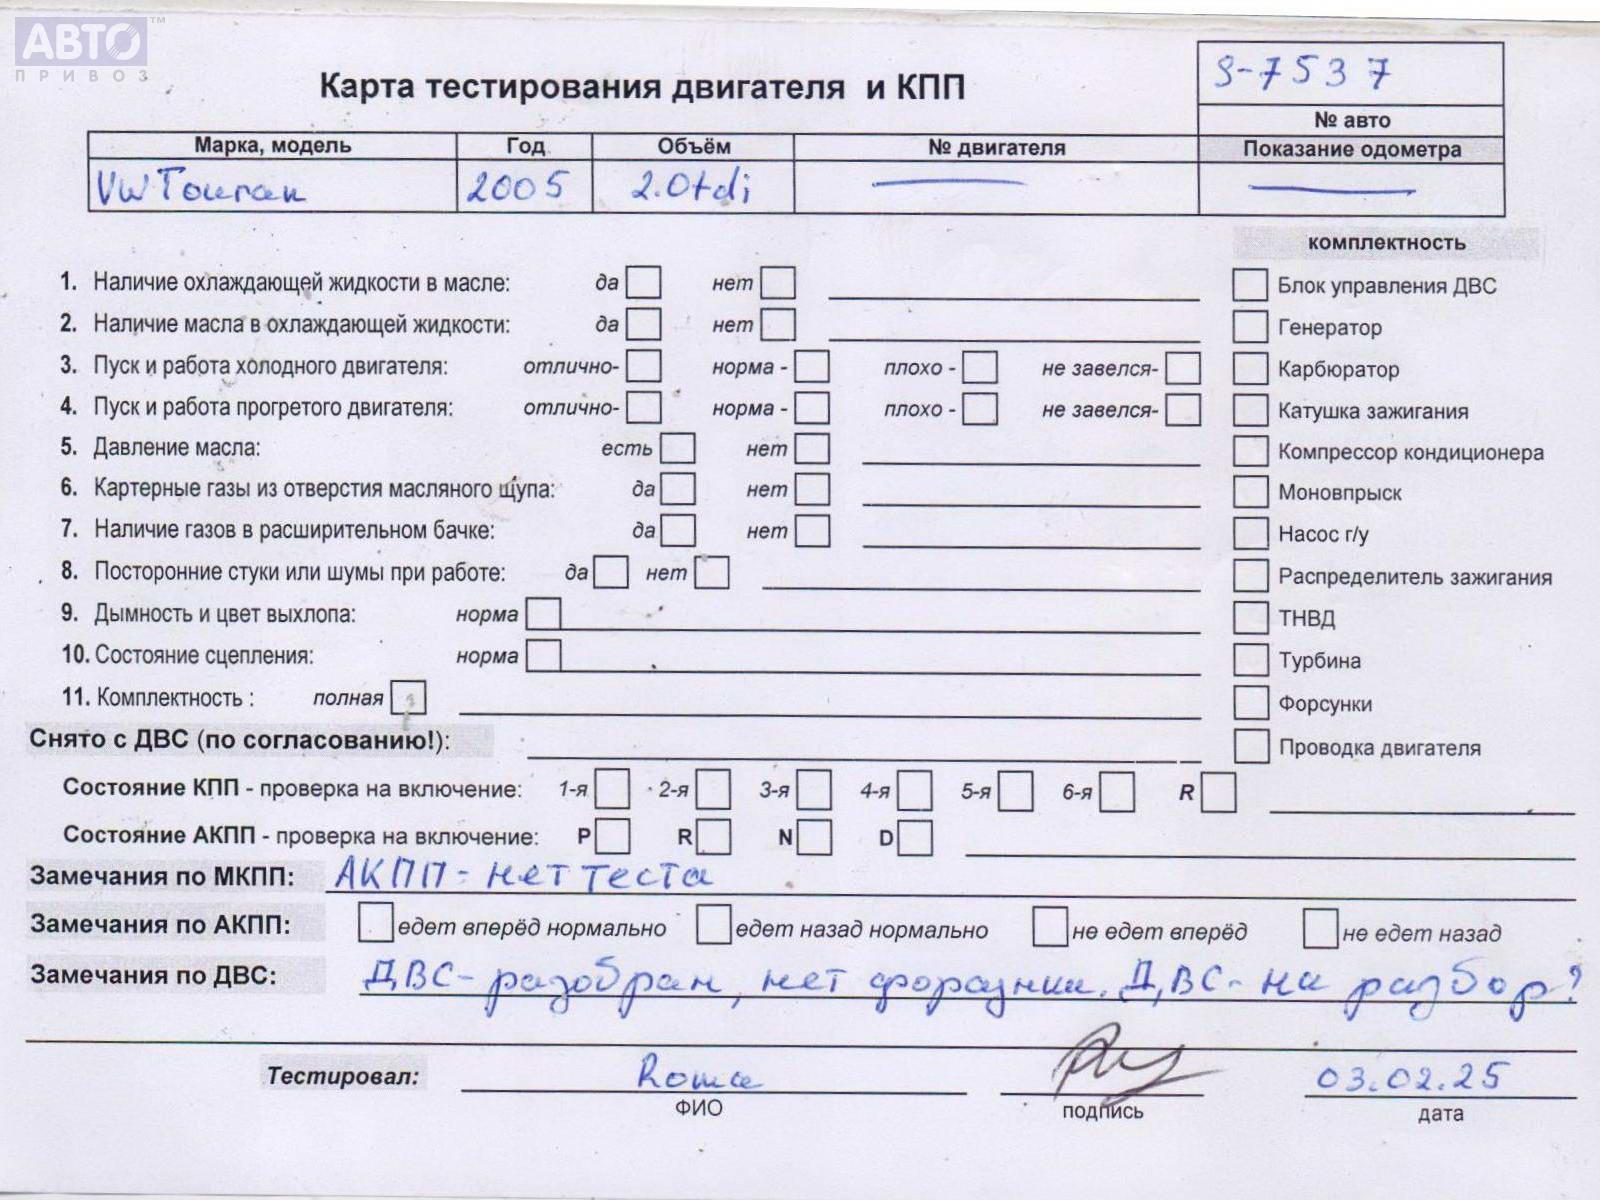 АВТО™
ПРИВОЗ
Карта тестирования двигателя и КПП
S-7537
№ авто
Марка, модель Год Объём № двигателя Показание одометра
VW Touran 2005 2.0tdi
комплектность
1. Наличие охлаждающей жидкости в масле: да нет Блок управления ДВС
2. Наличие масла в охлаждающей жидкости: да нет Генератор
3. Пуск и работа холодного двигателя: отлично- норма - плохо - не завелся- Карбюратор
4. Пуск и работа прогретого двигателя: отлично- норма - плохо - не завелся- Катушка зажигания
5. Давление масла: есть нет Компрессор кондиционера
6. Картерные газы из отверстия масляного щупа: да нет Моновпрыск
7. Наличие газов в расширительном бачке: да нет Насос г/у
8. Посторонние стуки или шумы при работе: да нет Распределитель зажигания
9. Дымность и цвет выхлопа: норма ТНВД
10. Состояние сцепления: норма Турбина
11. Комплектность : полная Форсунки
Снято с ДВС (по согласованию!): Проводка двигателя
Состояние КПП - проверка на включение: 1-я 2-я 3-я 4-я 5-я 6-я R
Состояние АКПП - проверка на включение: P R N D
Замечания по МКПП: АКПП - нет теста
Замечания по АКПП: едет вперёд нормально едет назад нормально не едет вперёд не едет назад
Замечания по ДВС: ДВС - разобран, нет форсунки. ДВС - на разбор?
Тестировал: Roma 03.02.25
ФИО подпись дата